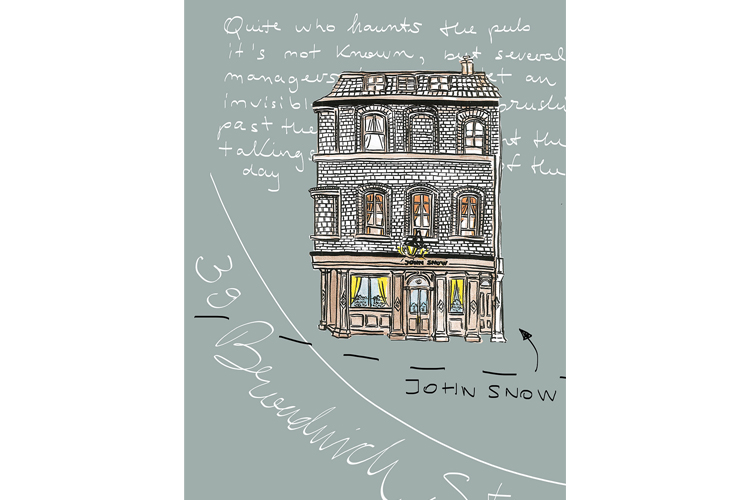 Quite who haunts the pub
it's not known, but several
managers et an
invisibl rushi
past the t the
takings f the
day
JOHN SNOW
39
Broadwick St
JOHN SNOW